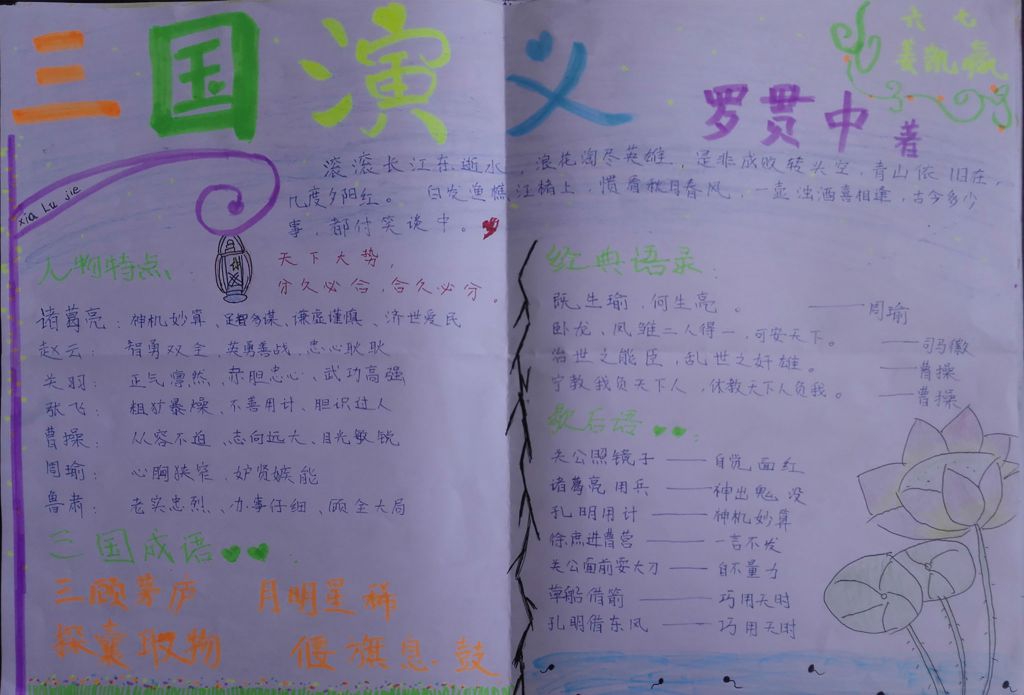 三国演义
罗贯中 著
六七
姜凯瀛
xia Lu jie
滚滚长江东逝水，浪花淘尽英雄，是非成败转头空，青山依旧在，
几度夕阳红。 白发渔樵江楮上，惯看秋月春风，一壶浊酒喜相逢，古今多少
事，都付笑谈中。
天下大势，
分久必合，合久必分。
人物特点：
诸葛亮：神机妙算、足智多谋、谦虚谨慎、济世爱民
赵云：智勇双全、英勇善战、忠心耿耿
关羽：正气凛然、赤胆忠心、武功高强
张飞：粗犷暴燥、不善用计、胆识过人
曹操：从容不迫、志向远大、目光敏锐
周瑜：心胸狭窄、妒贤嫉能
鲁肃：老实忠烈、办事仔细、顾全大局
三国成语：
三顾茅庐 月明星稀
探囊取物 偃旗息鼓
经典语录：
既生瑜，何生亮。 ——周瑜
卧龙，凤雏二人得一，可安天下。 ——司马徽
治世之能臣，乱世之奸雄。 ——曹操
宁教我负天下人，休教天下人负我。 ——曹操
歇后语：
关公照镜子——自觉面红
诸葛亮用兵——神出鬼没
孔明用计——神机妙算
徐庶进曹营——一言不发
关公面前耍大刀——自不量力
草船借箭——巧用天时
孔明借东风——巧用天时